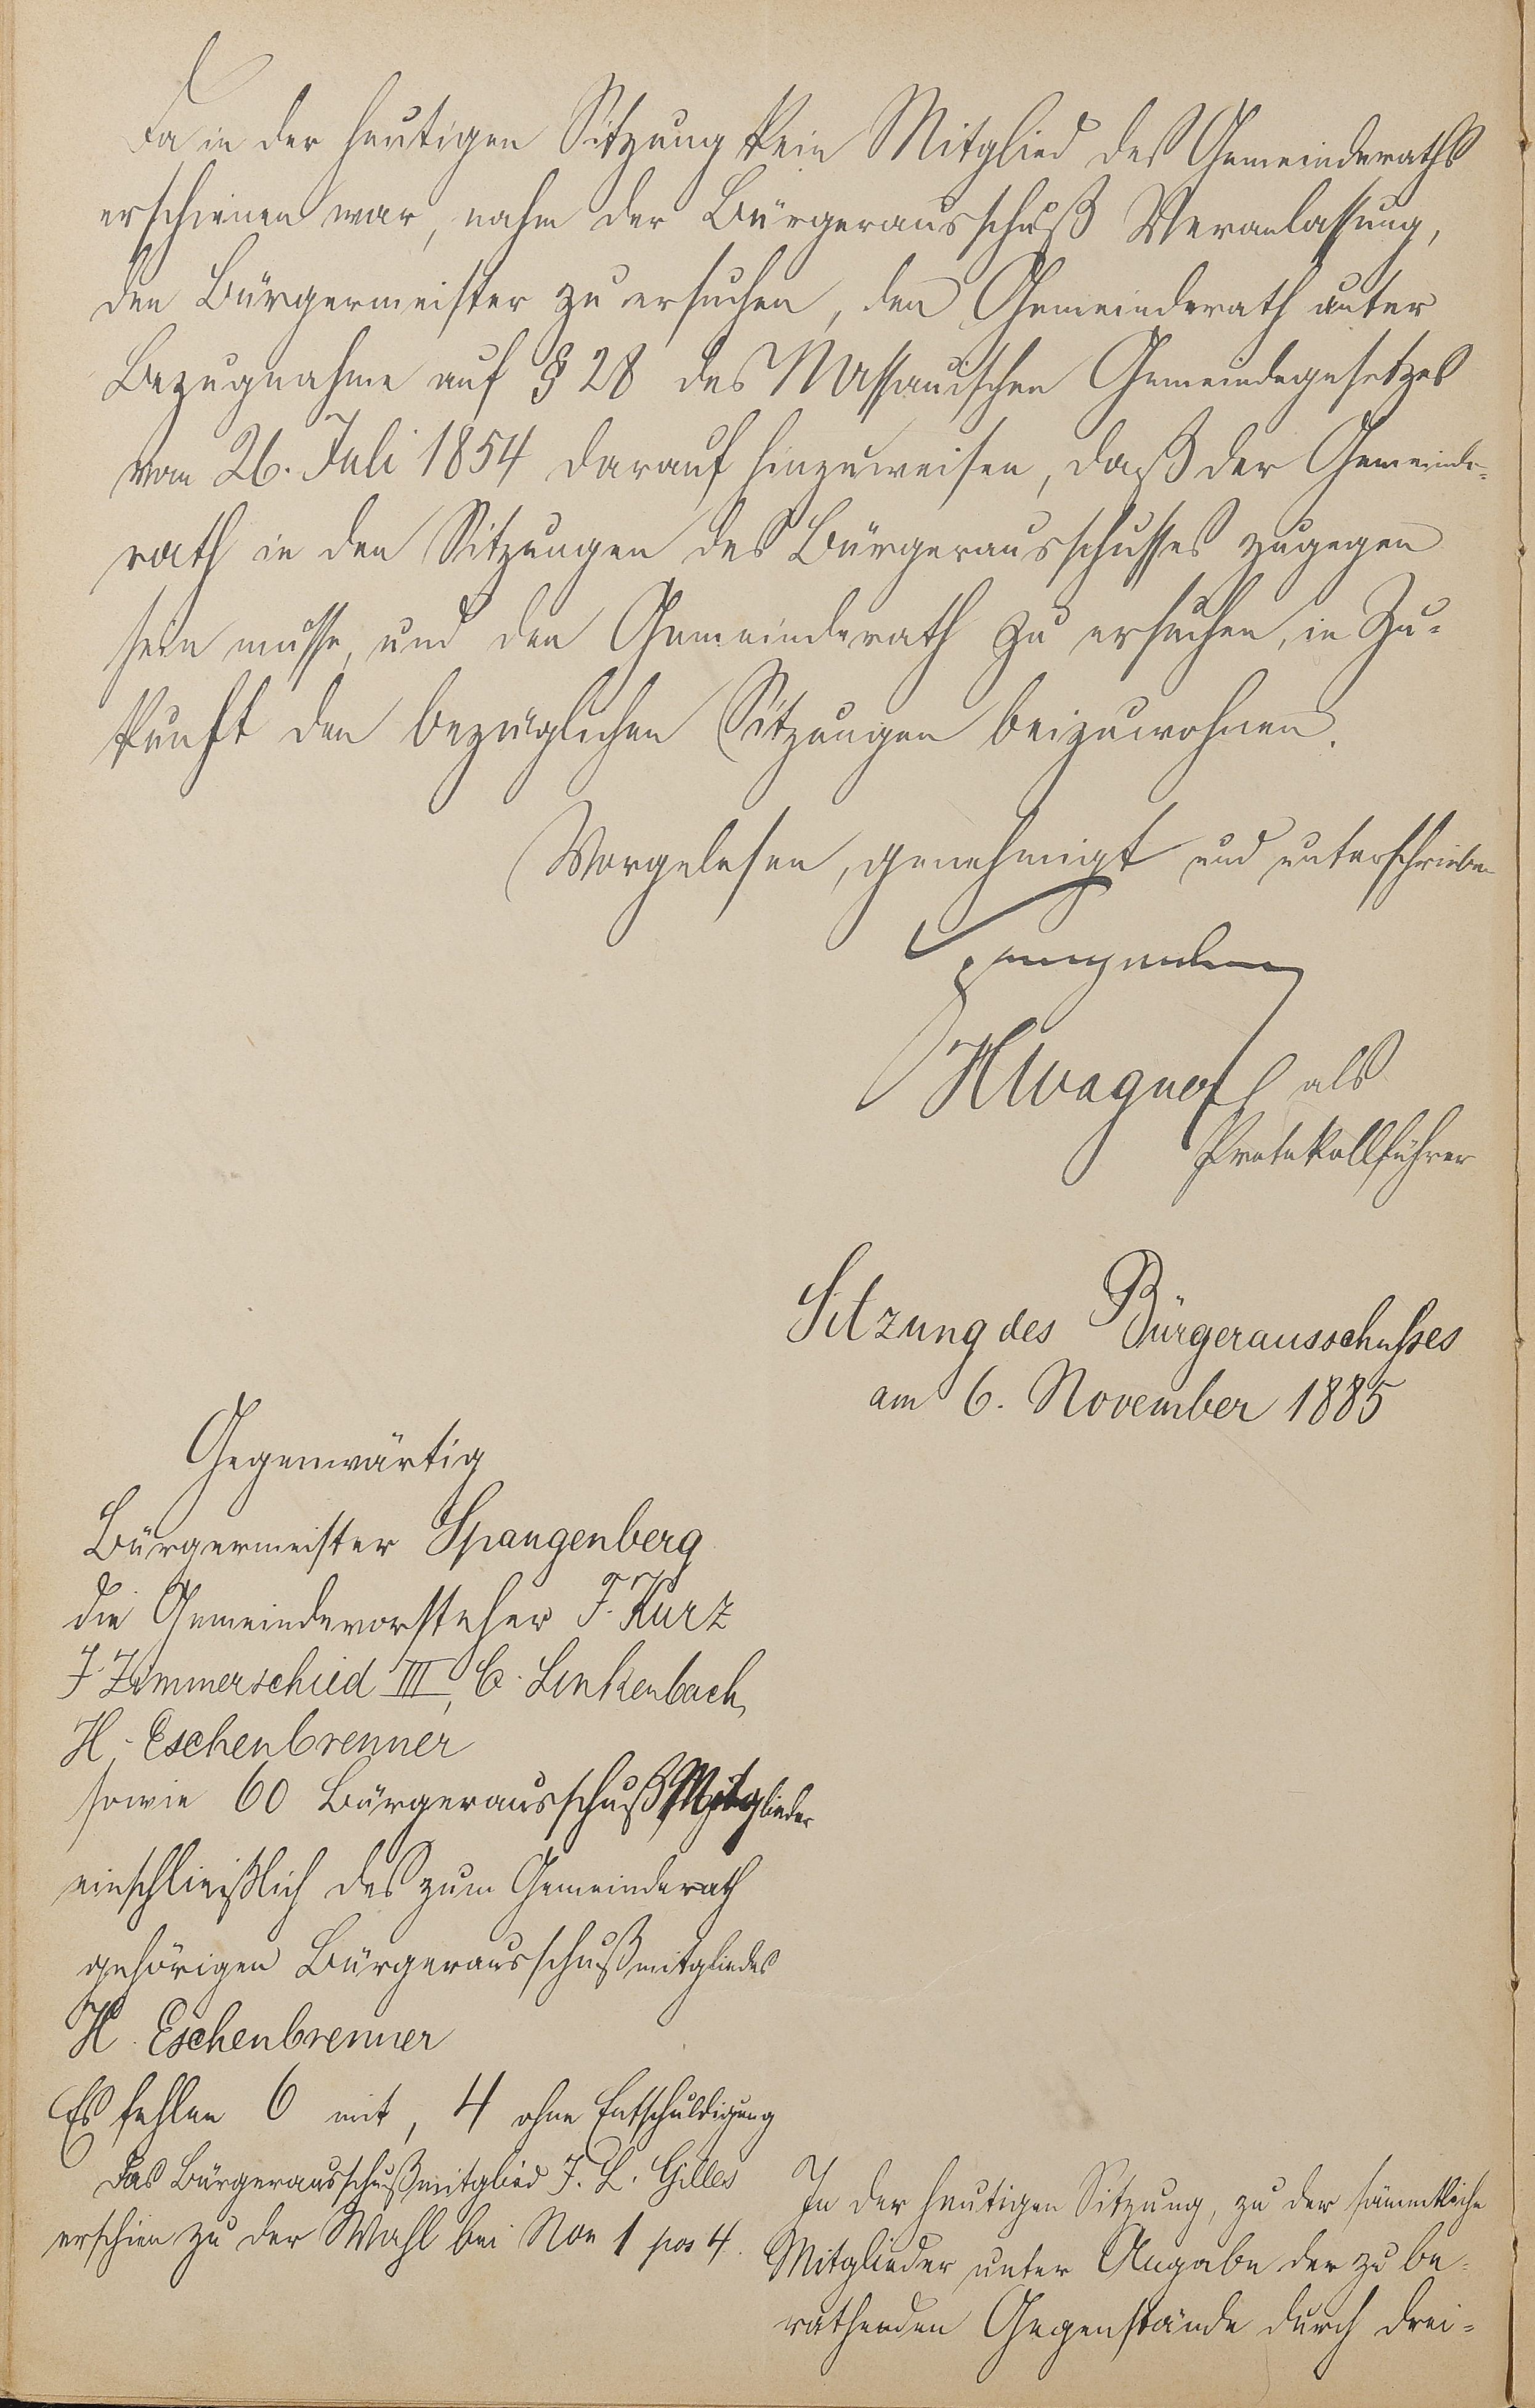 Da in der heutigen Sitzung kein Mitglied des Gemeinderaths
erschienen war, nahm der Bürgerausschuß Veranlassung,
den Bürgermeister zu ersuchen, den Gemeinderath unter
Bezugnahme auf § 28 des Nassauischen Gemeindegesetzes
vom 26. Juli 1854 darauf hinzuweisen, daß der Gemeinde-
rath in den Sitzungen des Bürgerausschusses zugegen
sein müsse, und den Gemeinderath zu ersuchen, in Zu-
kunft den bezüglichen Sitzungen beizuwohnen.
Vorgelesen, genehmigt und unterschrieben
Spangenberg
H Wagner als
Protokollführer
Sitzung des Bürgerausschusses
am 6. November 1885
Gegenwärtig
Bürgermeister Spangenberg
die Gemeindevorsteher F. Kurz
J. Zimmerschied III, C. Linkenbach,
H. Eschenbrenner
sowie 60 Bürgerausschuß Mitglieder
einschließlich des zum Gemeinderath
gehörigen Bürgerausschußmitgliedes
H. Eschenbrenner
Es fehlen 6 mit, 4 ohne Entschuldigung
Das Bürgerausschußmitglied J. L. Gilles
erschien zu der Wahl bei Nro 1 pos 4.
In der heutigen Sitzung, zu der sämmtliche
Mitglieder unter Angabe der zu be-
rathenden Gegenstände durch drei-